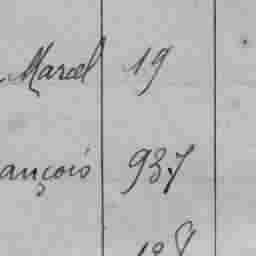 Marcel 19
ançois 937